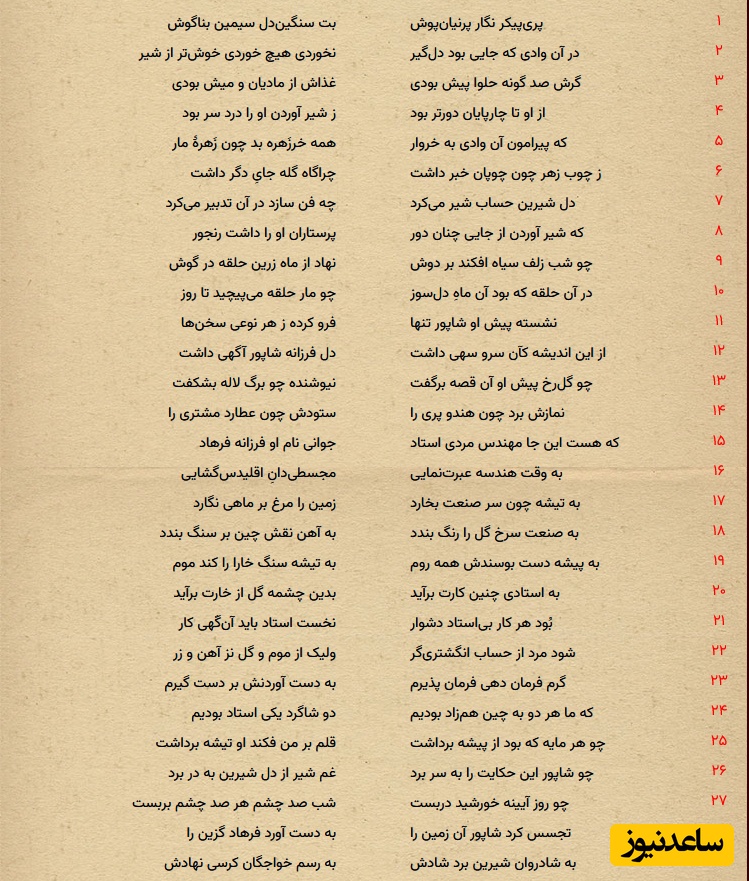 ۱ پری‌پیکر نگار پرنیان‌پوش بت سنگین‌دل سیمین بناگوش
۲ در آن وادی که جایی بود دل‌گیر نخوردی هیچ خوردی خوش‌تر از شیر
۳ گرش صد گونه حلوا پیش بودی غذاش از مادیان و میش بودی
۴ از او تا چارپایان دورتر بود ز شیر آوردن او را درد سر بود
۵ که پیرامون آن وادی به خروار همه خرزَهره بد چون زَهرهٔ مار
۶ ز چوب زهر چون چوپان خبر داشت چراگاه گله جایِ دگر داشت
۷ دل شیرین حساب شیر می‌کرد چه فن سازد در آن تدبیر می‌کرد
۸ که شیر آوردن از جایی چنان دور پرستاران او را داشت رنجور
۹ چو شب زلف سیاه افکند بر دوش نهاد از ماه زرین حلقه در گوش
۱۰ در آن حلقه که بود آن ماهِ دل‌سوز چو مار حلقه می‌پیچید تا روز
۱۱ نشسته پیش او شاپور تنها فرو کرده ز هر نوعی سخن‌ها
۱۲ از این اندیشه کآن سرو سهی داشت دل فرزانه شاپور آگهی داشت
۱۳ چو گل‌رخ پیش او آن قصه برگفت نیوشنده چو برگ لاله بشکفت
۱۴ نمازش برد چون هندو پری را ستودش چون عطارد مشتری را
۱۵ که هست این جا مهندس مردی استاد جوانی نام او فرزانه فرهاد
۱۶ به وقت هندسه عبرت‌نمایی مجسطی‌دانِ اقلیدس‌گشایی
۱۷ به تیشه چون سر صنعت بخارد زمین را مرغ بر ماهی نگارد
۱۸ به صنعت سرخ گل را رنگ بندد به آهن نقش چین بر سنگ بندد
۱۹ به پیشه دست بوسندش همه روم به تیشه سنگ خارا را کند موم
۲۰ به استادی چنین کارت برآید بدین چشمه گل از خارت برآید
۲۱ بُود هر کار بی‌استاد دشوار نخست استاد باید آن‌گهی کار
۲۲ شود مرد از حساب انگشتری‌گر ولیک از موم و گل نز آهن و زر
۲۳ گرم فرمان دهی فرمان پذیرم به دست آوردنش بر دست گیرم
۲۴ که ما هر دو به چین هم‌زاد بودیم دو شاگرد یکی استاد بودیم
۲۵ چو هر مایه که بود از پیشه برداشت قلم بر من فکند او تیشه برداشت
۲۶ چو شاپور این حکایت را به سر برد غم شیر از دل شیرین به در برد
۲۷ چو روز آیینه خورشید دربست شب صد چشم هر صد چشم بربست
تجسس کرد شاپور آن زمین را به دست آورد فرهاد گزین را
به شادروان شیرین برد شادش به رسم خواجگان کرسی نهادش
ساعدنیوز